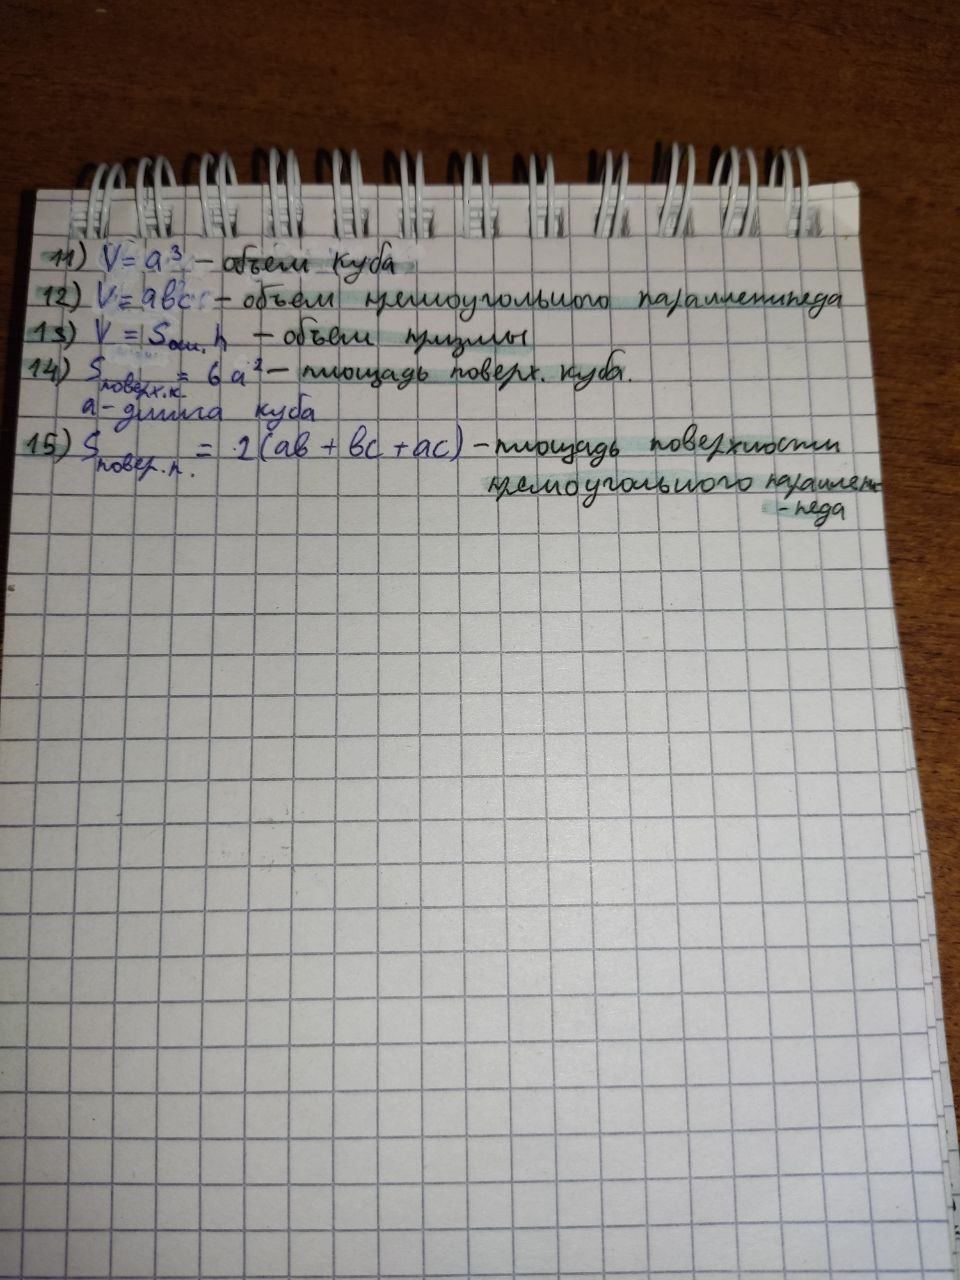 11) V = a³ – объем куба
12) V = abc – объем прямоугольного параллелипеда
13) V = Sосн. h – объем призмы
14) Sповерх.к. = 6a² – площадь поверх. куба.
a – длина куба
15) Sповер.п. = 2(ab + bc + ac) – площадь поверхности
прямоугольного параллеле
-педа